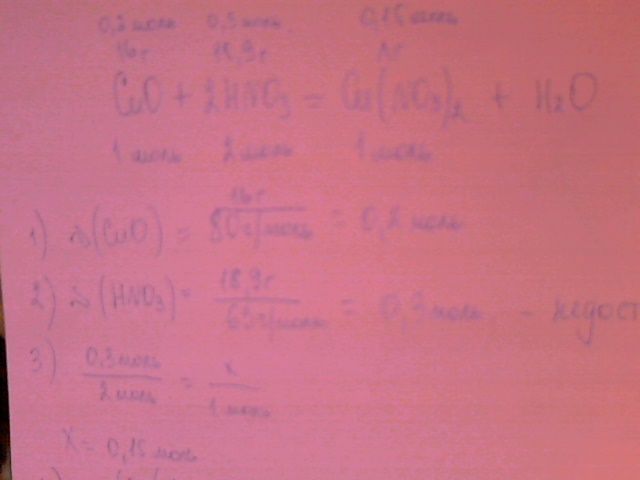 0,2 моль 0,3 моль 0,15 моль
16г 18,9г xг
CuO + 2HNO₃ = Cu(NO₃)₂ + H₂O
1 моль 2 моль 1 моль
1) ν(CuO) = 16г / 80г/моль = 0,2 моль
2) ν(HNO₃) = 18,9г / 63г/моль = 0,3 моль - недост
3) 0,3 моль / 2 моль = x / 1 моль
X = 0,15 моль